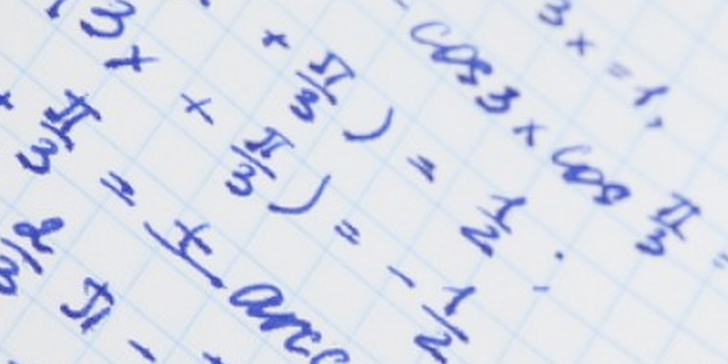 3x = 1,
cos3x cos π/3 =
+ π/3) = 1/2 ;
3x + π/3) = - 1/2
+ π/3 = ± arcc
2/3 π -